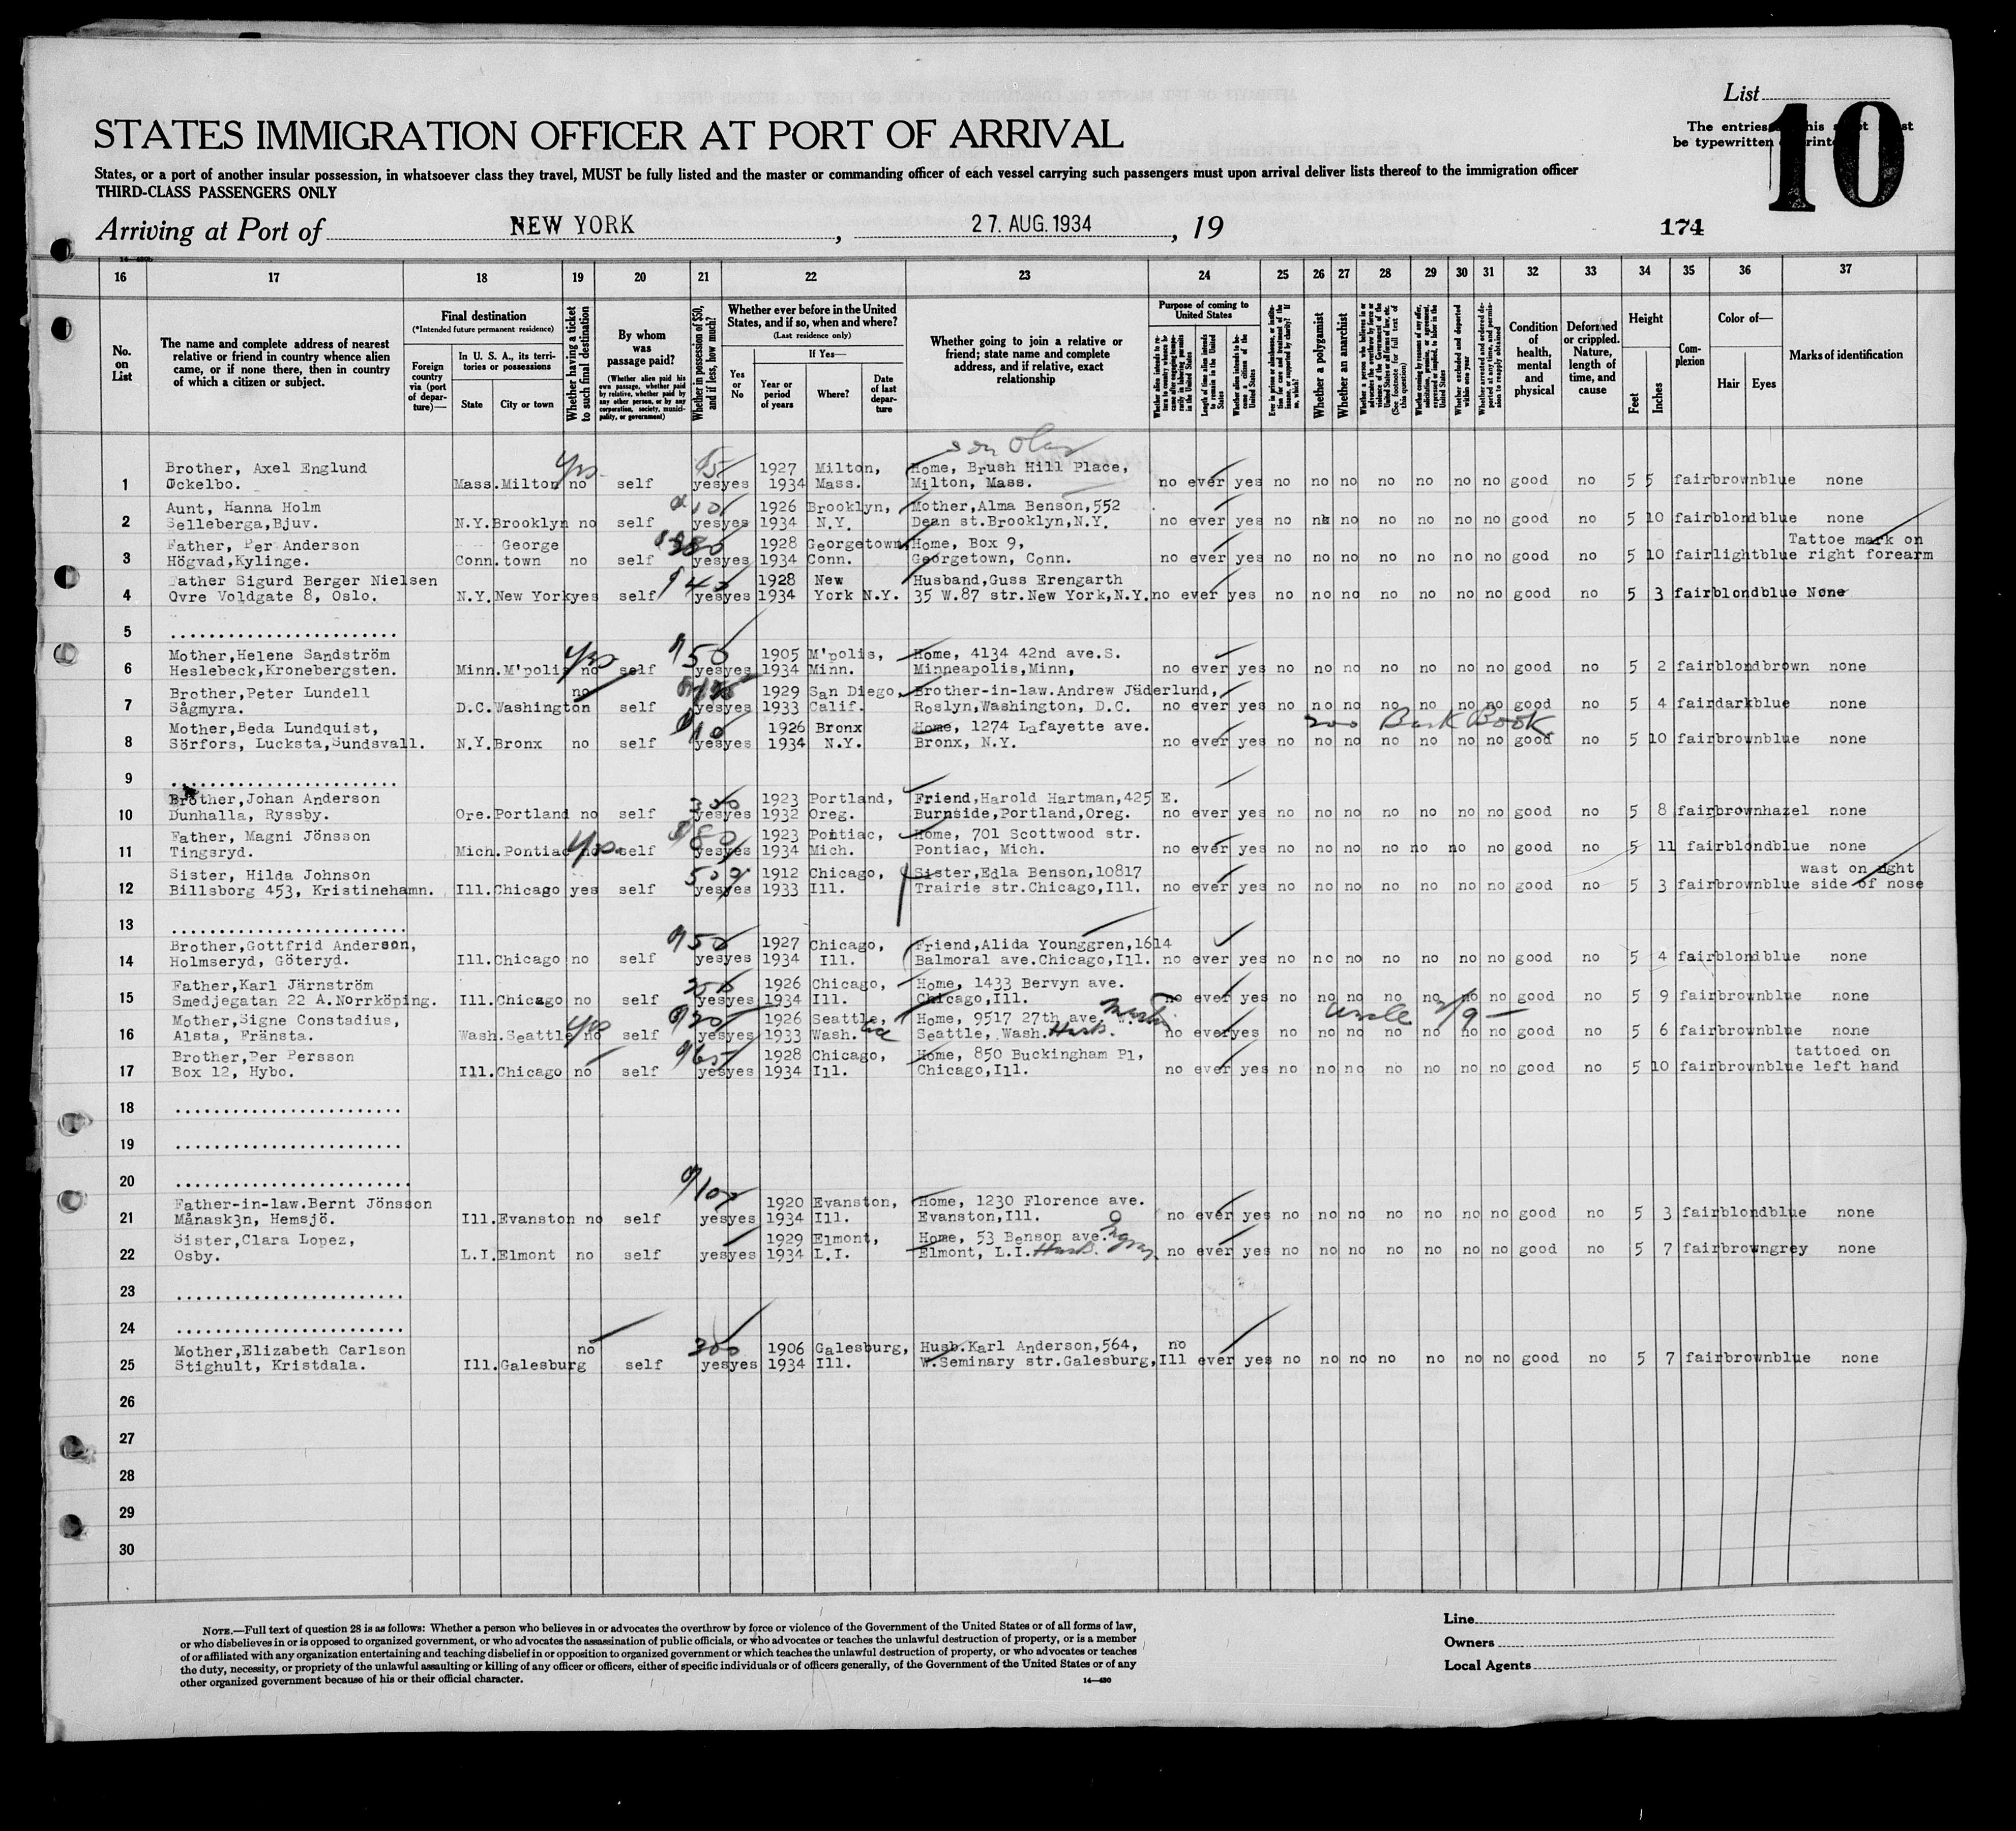 List
10
The entries
be typewritten
STATES IMMIGRATION OFFICER AT PORT OF ARRIVAL
States, or a port of another insular possession, in whatsoever class they travel, MUST be fully listed and the master or commanding officer of each vessel carrying such passengers must upon arrival deliver lists thereof to the immigration officer
THIRD-CLASS PASSENGERS ONLY
Arriving at Port of NEW YORK, 27. AUG. 1934, 19
174
16 17 18 19 20 21 22 23 24 25 26 27 28 29 30 31 32 33 34 35 36 37
No. on List
The name and complete address of nearest relative or friend in country whence alien came, or if none there, then in country of which a citizen or subject.
Final destination
(*Intended future permanent residence)
Foreign country via (port of departure)—
In U. S. A., its territories or possessions
State
City or town
Whether having a ticket to such final destination
By whom was passage paid?
(Whether alien paid his own passage, whether paid by relative, whether paid by any other person, or by any corporation, society, municipality, or government)
Whether in possession of $50, and if less, how much?
Whether ever before in the United States, and if so, when and where?
(Last residence only)
Yes or No
If Yes—
Year or period of years
Where?
Date of last departure
Whether going to join a relative or friend; state name and complete address, and if relative, exact relationship
Purpose of coming to United States
Length of time alien intends to remain in the United States
Whether alien intends to become a citizen of the United States
Whether a polygamist
Whether an anarchist
(See footnote for full text of this question)
Whether excluded and deported within one year
Condition of health, mental and physical
Deformed or crippled. Nature, length of time, and cause
Height
Feet
Inches
Complexion
Color of—
Hair
Eyes
Marks of identification
son Olav
Brother, Axel Englund yes 1927 Milton, Home, Brush Hill Place,
1 Ockelbo. Mass. Milton no self yes yes 1934 Mass. Milton, Mass. no ever yes no no no no no no no good no 5 5 fair brown blue none
Aunt, Hanna Holm 10 1926 Brooklyn, Mother, Alma Benson, 552
2 Selleberga, Bjuv. N.Y. Brooklyn no self yes yes 1934 N.Y. Dean st. Brooklyn, N.Y. no ever yes no no no no no no no good no 5 10 fair blond blue none
Father, Per Anderson George 1928 Georgetown, Home, Box 9, Tattoe mark on
3 Högvad, Kylinge. Conn. town no self yes yes 1934 Conn. Georgetown, Conn. no ever yes no no no no no no no good no 5 10 fair light blue right forearm
Father Sigurd Berger Nielsen $40 1928 New Husband, Guss Erengarth
4 Ovre Voldgate 8, Oslo. N.Y. New York yes self yes yes 1934 York N.Y. 35 W.87 str. New York, N.Y. no ever yes no no no no no no no good no 5 3 fair blond blue None
5 ........................
Mother, Helene Sandström yes 50 1905 M'polis, Home, 4134 42nd ave.S.
6 Heslebeck, Kronebergsten. Minn. M'polis no self yes yes 1934 Minn. Minneapolis, Minn, no ever yes no no no no no no no good no 5 2 fair blond brown none
Brother, Peter Lundell no 1929 San Diego, Brother-in-law. Andrew Jäderlund,
7 Sågmyra. D.C. Washington self yes yes 1933 Calif. Roslyn, Washington, D.C. no ever yes no no no no no no no good no 5 4 fair dark blue none
Mother, Beda Lundquist, 10 1926 Bronx Home, 1274 Lafayette ave. 200 Bank Book
8 Sörfors, Lucksta, Sundsvall. N.Y. Bronx no self yes yes 1934 N.Y. Bronx, N.Y. no ever yes no no no no no no no good no 5 10 fair brown blue none
9 ........................
Brother, Johan Anderson 350 1923 Portland, Friend, Harold Hartman, 425 E.
10 Dunhalla, Ryssby. Ore. Portland no self yes yes 1932 Oreg. Burnside, Portland, Oreg. no ever yes no no no no no no no good no 5 8 fair brown hazel none
Father, Magni Jönsson yes 80 1923 Pontiac, Home, 701 Scottwood str.
11 Tingsryd. Mich. Pontiac no self yes yes 1934 Mich. Pontiac, Mich. no ever yes no no no no no no no good no 5 11 fair blond blue none
Sister, Hilda Johnson 50 1912 Chicago, Sister, Edla Benson, 10817 wast on right
12 Billsborg 453, Kristinehamn. Ill. Chicago yes self yes yes 1933 Ill. Trairie str. Chicago, Ill. no ever yes no no no no no no no good no 5 3 fair brown blue side of nose
13 ........................
Brother, Gottfrid Anderson, 50 1927 Chicago, Friend, Alida Younggren, 1614
14 Holmseryd, Göteryd. Ill. Chicago no self yes yes 1934 Ill. Balmoral ave. Chicago, Ill. no ever yes no no no no no no no good no 5 4 fair blond blue none
Father, Karl Järnström 1926 Chicago, Home, 1433 Bervyn ave.
15 Smedjegatan 22 A. Norrköping. Ill. Chicago no self yes yes 1934 Ill. Chicago, Ill. no ever yes no no no no no no no good no 5 9 fair brown blue none
Mother, Signe Constadius, yes 20 1926 Seattle, Home, 9517 27th ave. Martin uncle
16 Alsta, Fränsta. Wash. Seattle no self yes yes 1933 Wash. Seattle, Wash. Husb. no ever yes no no no no no no no good no 5 6 fair brown blue none
Brother, Per Persson 65 1928 Chicago, Home, 850 Buckingham Pl, tattoed on
17 Box 12, Hybo. Ill. Chicago no self yes yes 1934 Ill. Chicago, Ill. no ever yes no no no no no no no good no 5 10 fair brown blue left hand
18 ........................
19 ........................
20 ........................
Father-in-law. Bernt Jönsson 100 1920 Evanston, Home, 1230 Florence ave.
21 Månask3n, Hemsjö. Ill. Evanston no self yes yes 1934 Ill. Evanston, Ill. no ever yes no no no no no no no good no 5 3 fair blond blue none
Sister, Clara Lopez, 1929 Elmont, Home, 53 Benson ave.
22 Osby. L.I. Elmont no self yes yes 1934 L.I. Elmont, L.I. Husb. no ever yes no no no no no no no good no 5 7 fair brown grey none
23 ........................
24 ........................
Mother, Elizabeth Carlson no 300 1906 Galesburg, Husb. Karl Anderson, 564, no
25 Stighult, Kristdala. Ill. Galesburg self yes yes 1934 Ill. W. Seminary str. Galesburg, Ill ever yes no no no no no no no good no 5 7 fair brown blue none
26
27
28
29
30
NOTE.—Full text of question 28 is as follows: Whether a person who believes in or advocates the overthrow by force or violence of the Government of the United States or of all forms of law,
or who disbelieves in or is opposed to organized government, or who advocates the assassination of public officials, or who advocates or teaches the unlawful destruction of property, or is a member
of or affiliated with any organization entertaining and teaching disbelief in or opposition to organized government or which teaches the unlawful destruction of property, or who advocates or teaches
the duty, necessity, or propriety of the unlawful assaulting or killing of any officer or officers, either of specific individuals or of officers generally, of the Government of the United States or of any
other organized government because of his or their official character.
14—430
Line
Owners
Local Agents